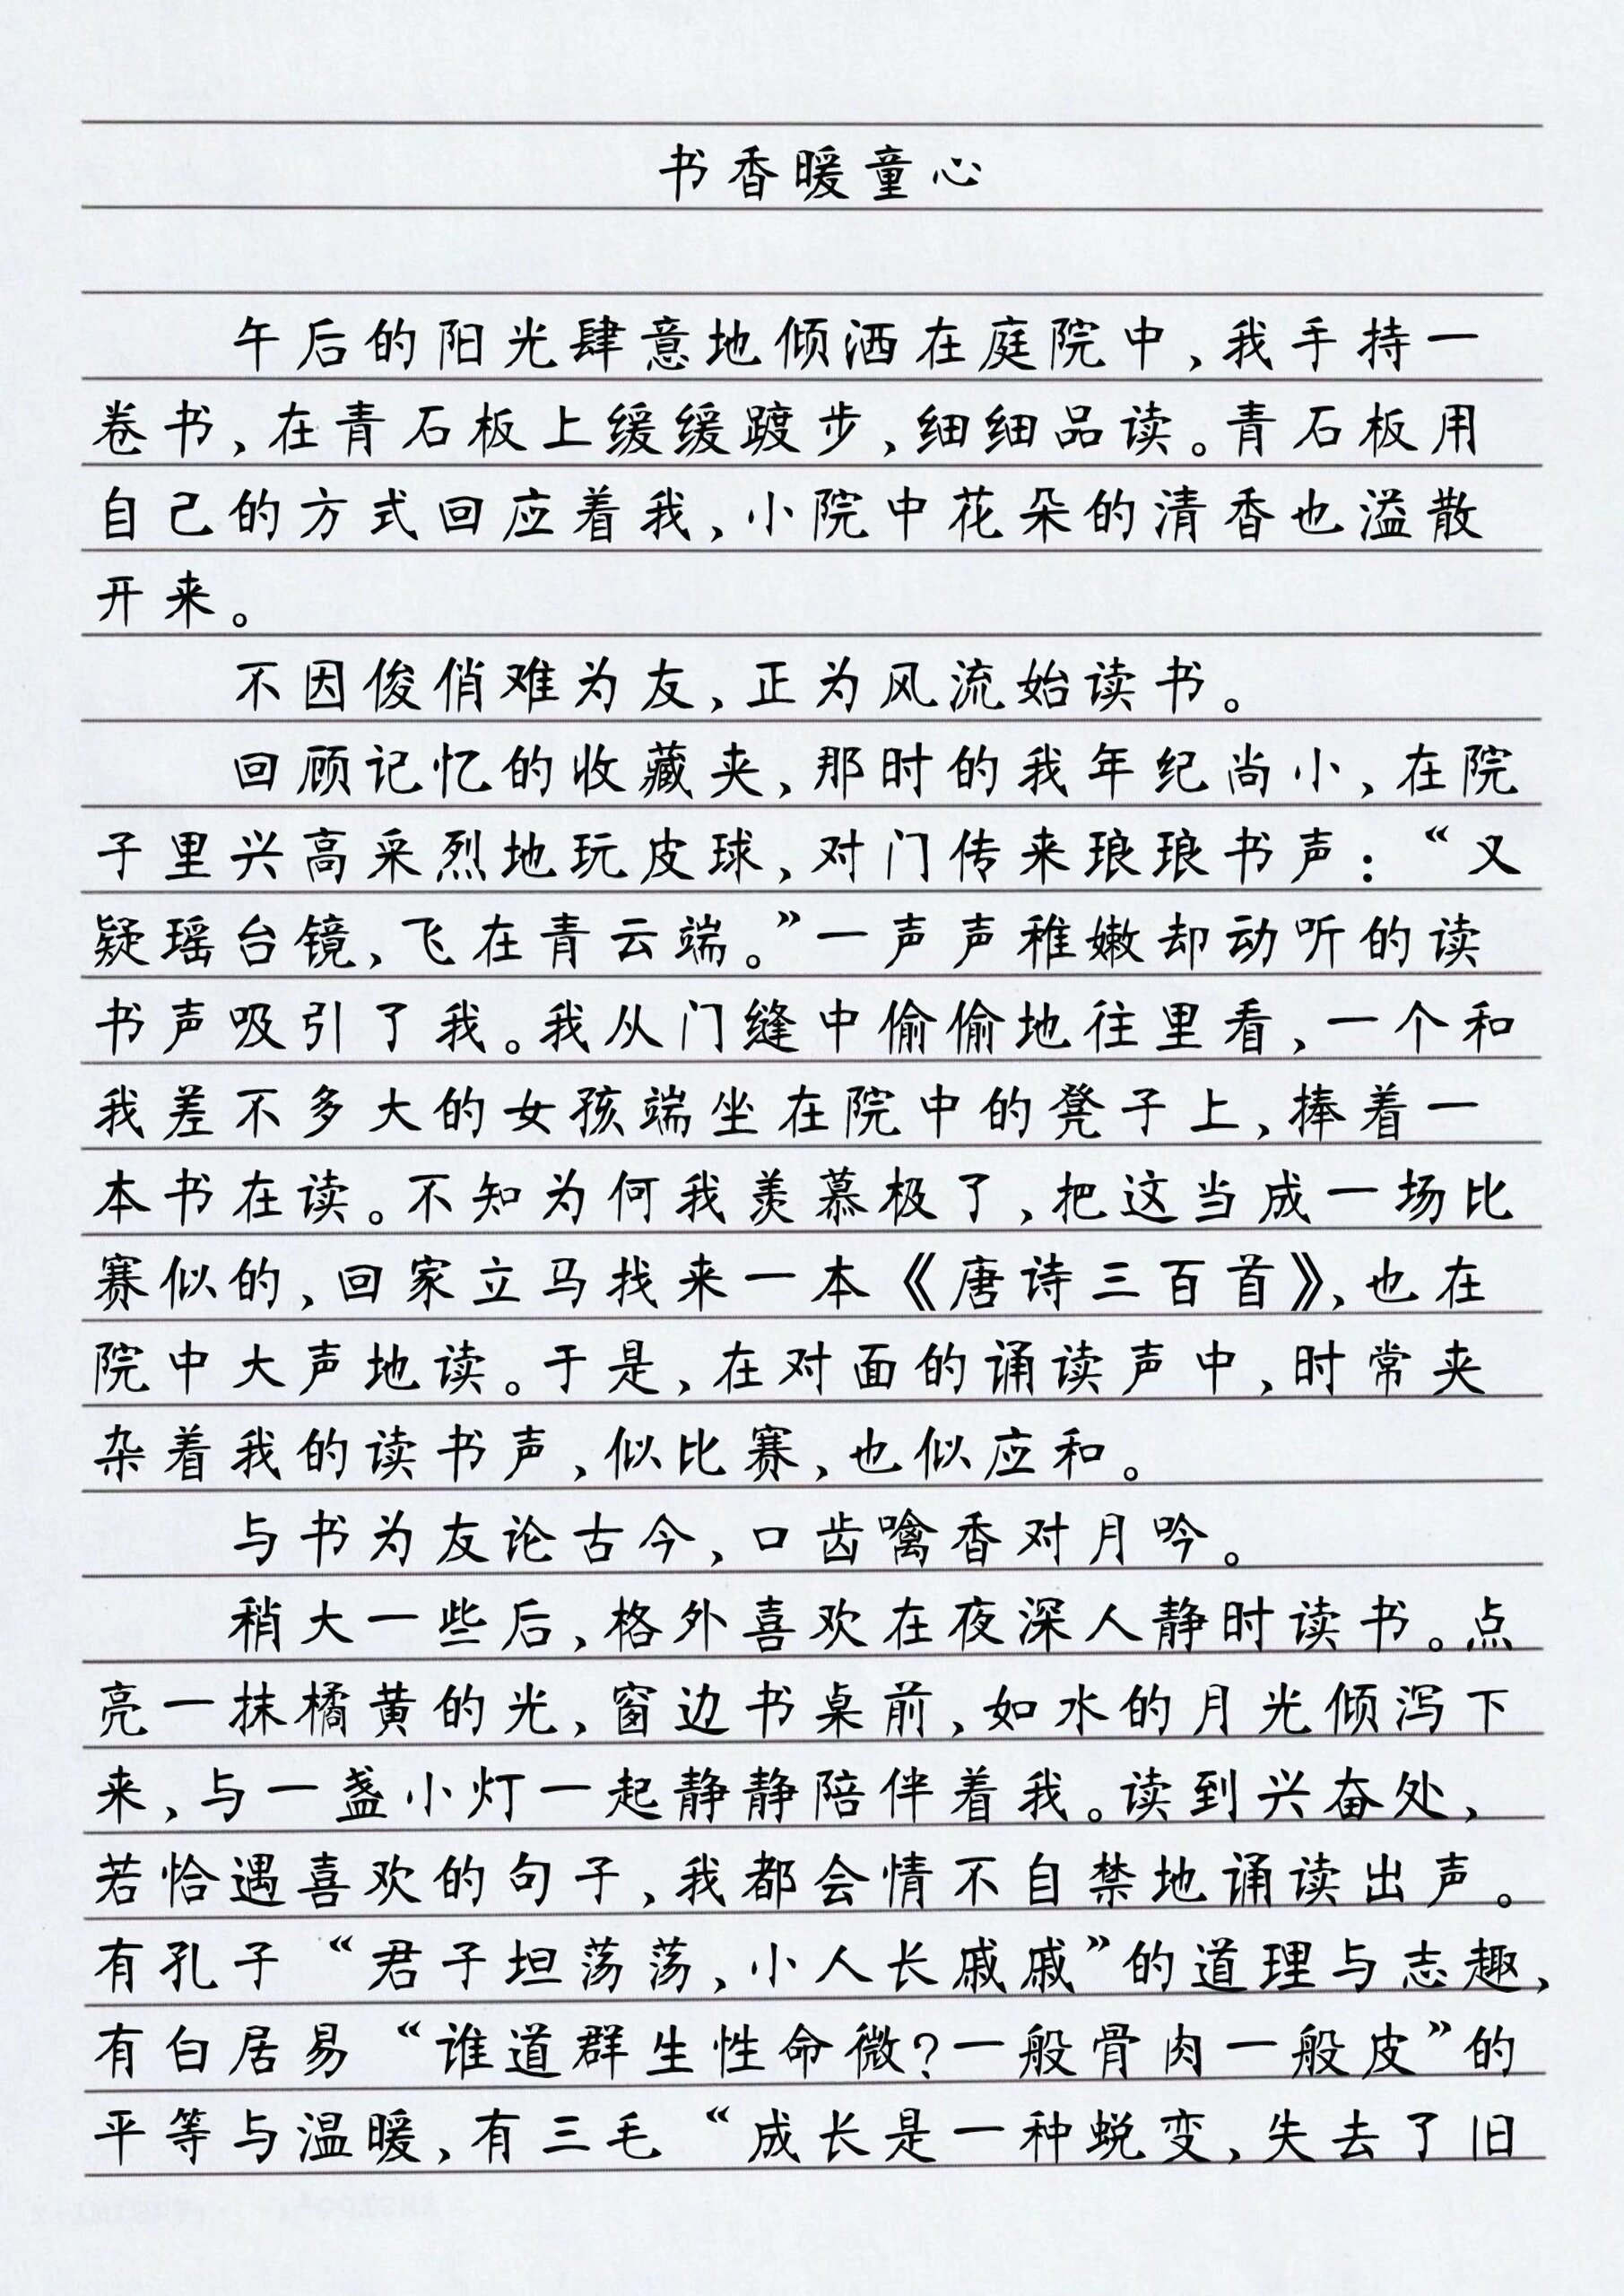 书香暖童心
午后的阳光肆意地倾洒在庭院中，我手持一
卷书，在青石板上缓缓踱步，细细品读。青石板用
自己的方式回应着我，小院中花朵的清香也溢散
开来。
不因俊俏难为友，正为风流始读书。
回顾记忆的收藏夹，那时的我年纪尚小，在院
子里兴高采烈地玩皮球，对门传来琅琅书声：“又
疑瑶台镜，飞在青云端。”一声声稚嫩却动听的读
书声吸引了我。我从门缝中偷偷地往里看，一个和
我差不多大的女孩端坐在院中的凳子上，捧着一
本书在读。不知为何我羡慕极了，把这当成一场比
赛似的，回家立马找来一本《唐诗三百首》，也在
院中大声地读。于是，在对面的诵读声中，时常夹
杂着我的读书声，似比赛，也似应和。
与书为友论古今，口齿噙香对月吟。
稍大一些后，格外喜欢在夜深人静时读书。点
亮一抹橘黄的光，窗边书桌前，如水的月光倾泻下
来，与一盏小灯一起静静陪伴着我。读到兴奋处，
若恰遇喜欢的句子，我都会情不自禁地诵读出声。
有孔子“君子坦荡荡，小人长戚戚”的道理与志趣，
有白居易“谁道群生性命微？一般骨肉一般皮”的
平等与温暖，有三毛“成长是一种蜕变，失去了旧